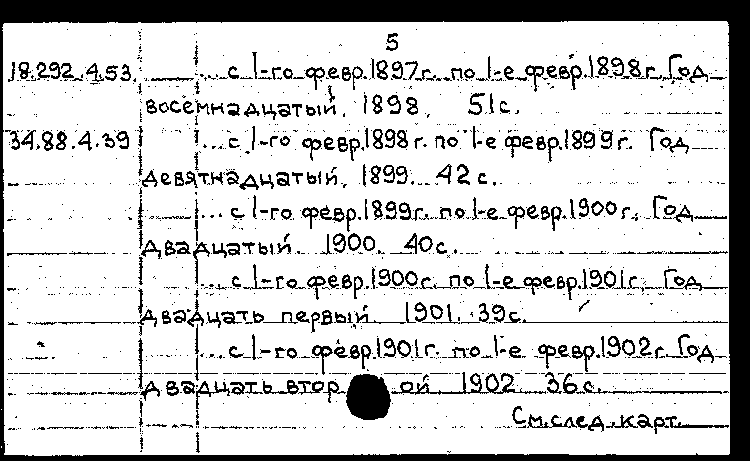 5
18.292.4.53. ... с 1-го февр.1897г. по 1-е февр.1898г. Год
восемнадцатый. 1898. 51с.
34.88.4.39 ... с 1-го февр.1898г. по 1-е февр.1899г. Год
девятнадцатый. 1899. 42с.
... с 1-го февр.1899г. по 1-е февр.1900г. Год
двадцатый. 1900. 40с.
... с 1-го февр.1900г. по 1-е февр.1901г. Год
двадцать первый. 1901. 39с.
... с 1-го февр.1901г. по 1-е февр.1902г. Год
двадцать второй. 1902. 36с.
См.след.карт.